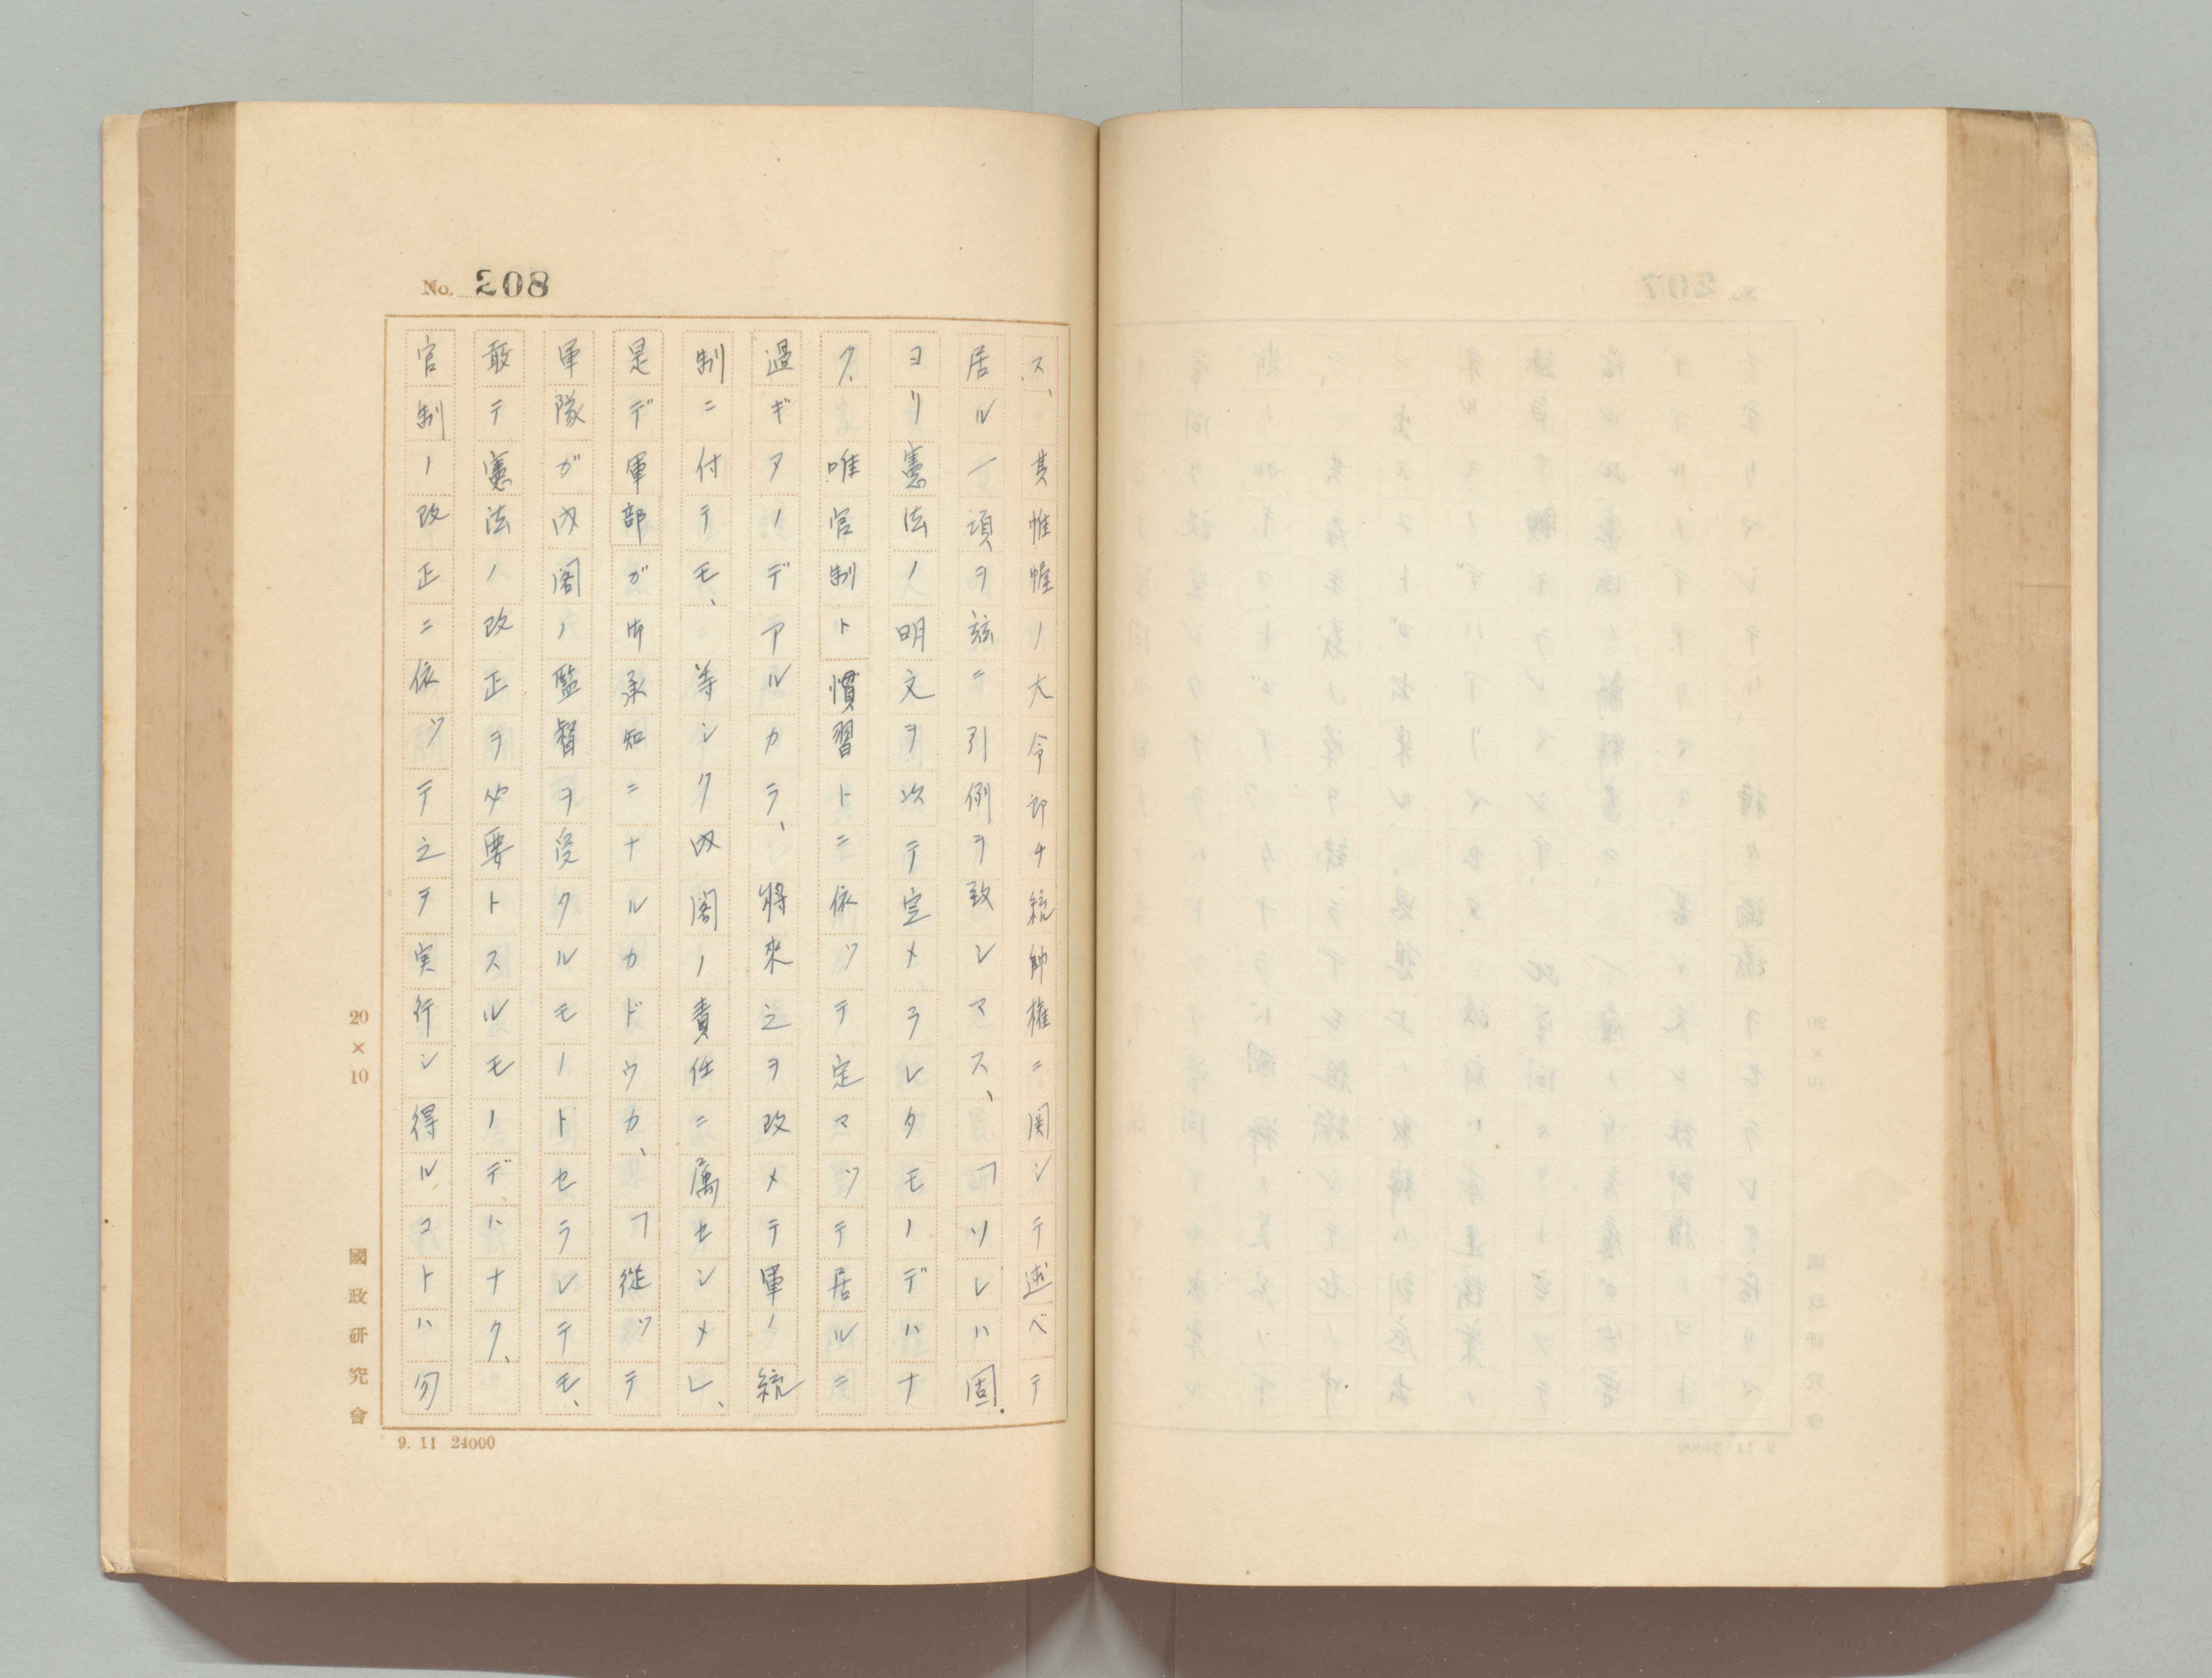 No. 208
ス、其帷幄ノ大令即チ統帥権ニ関シテ述ベテ
居ル一項ヲ茲ニ引例ヲ致シマス、「ソレハ固
ヨリ憲法ノ明文ヲ以テ定メラレタモノデハナ
ク、唯官制ト慣習トニ依ツテ定マツテ居ルニ
過ギヌノデアルカラ、將來之ヲ改メテ軍ノ統
制ニ付テモ、等シク内閣ノ責任ニ属センメレ、
是デ軍部ガ御承知ニナルカドウカ、「従ツテ
軍隊ガ内閣ノ監督ヲ受クルモノトセラレテモ、
敢テ憲法ノ改正ヲ必要トスルモノデハナク、
官制ノ改正ニ依ツテ之ヲ実行シ得ルコトハ勿
20×10
國政研究會
9. 11 24000